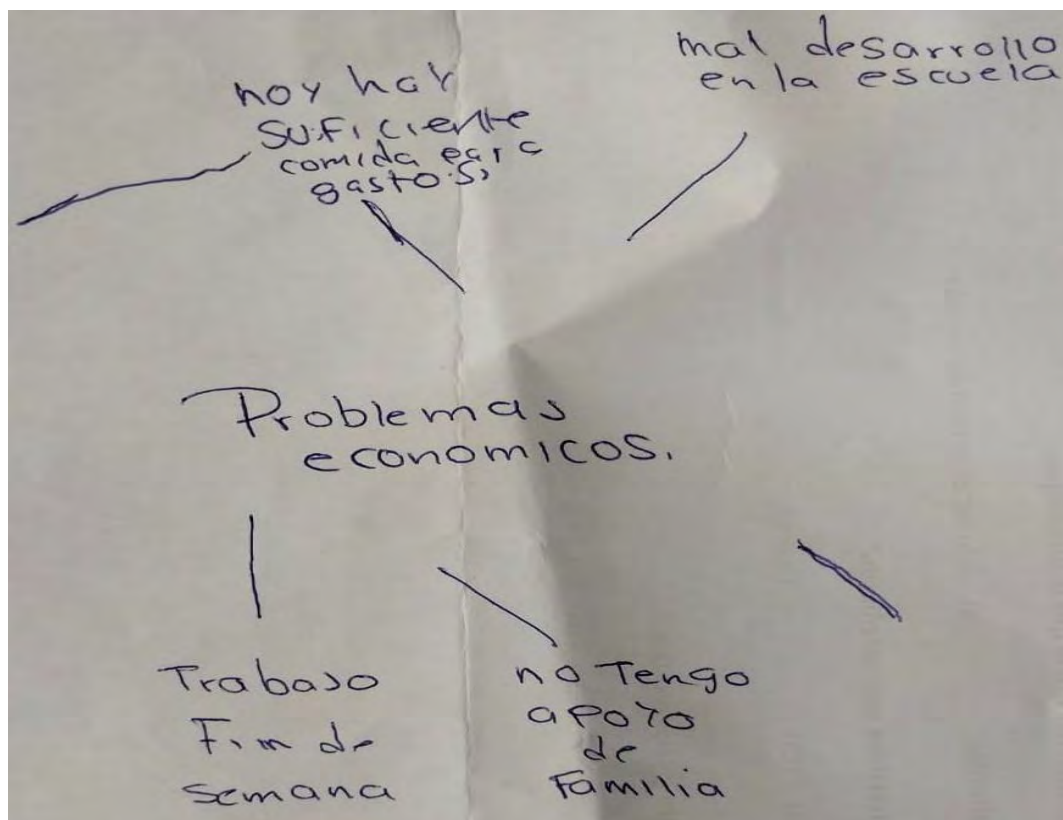 noy hay
suficiente
comida para
gastos,
mal desarrollo
en la escuela
Problemas
economicos.
Trabajo
Fin de
semana
no Tengo
apoyo
de
Familia